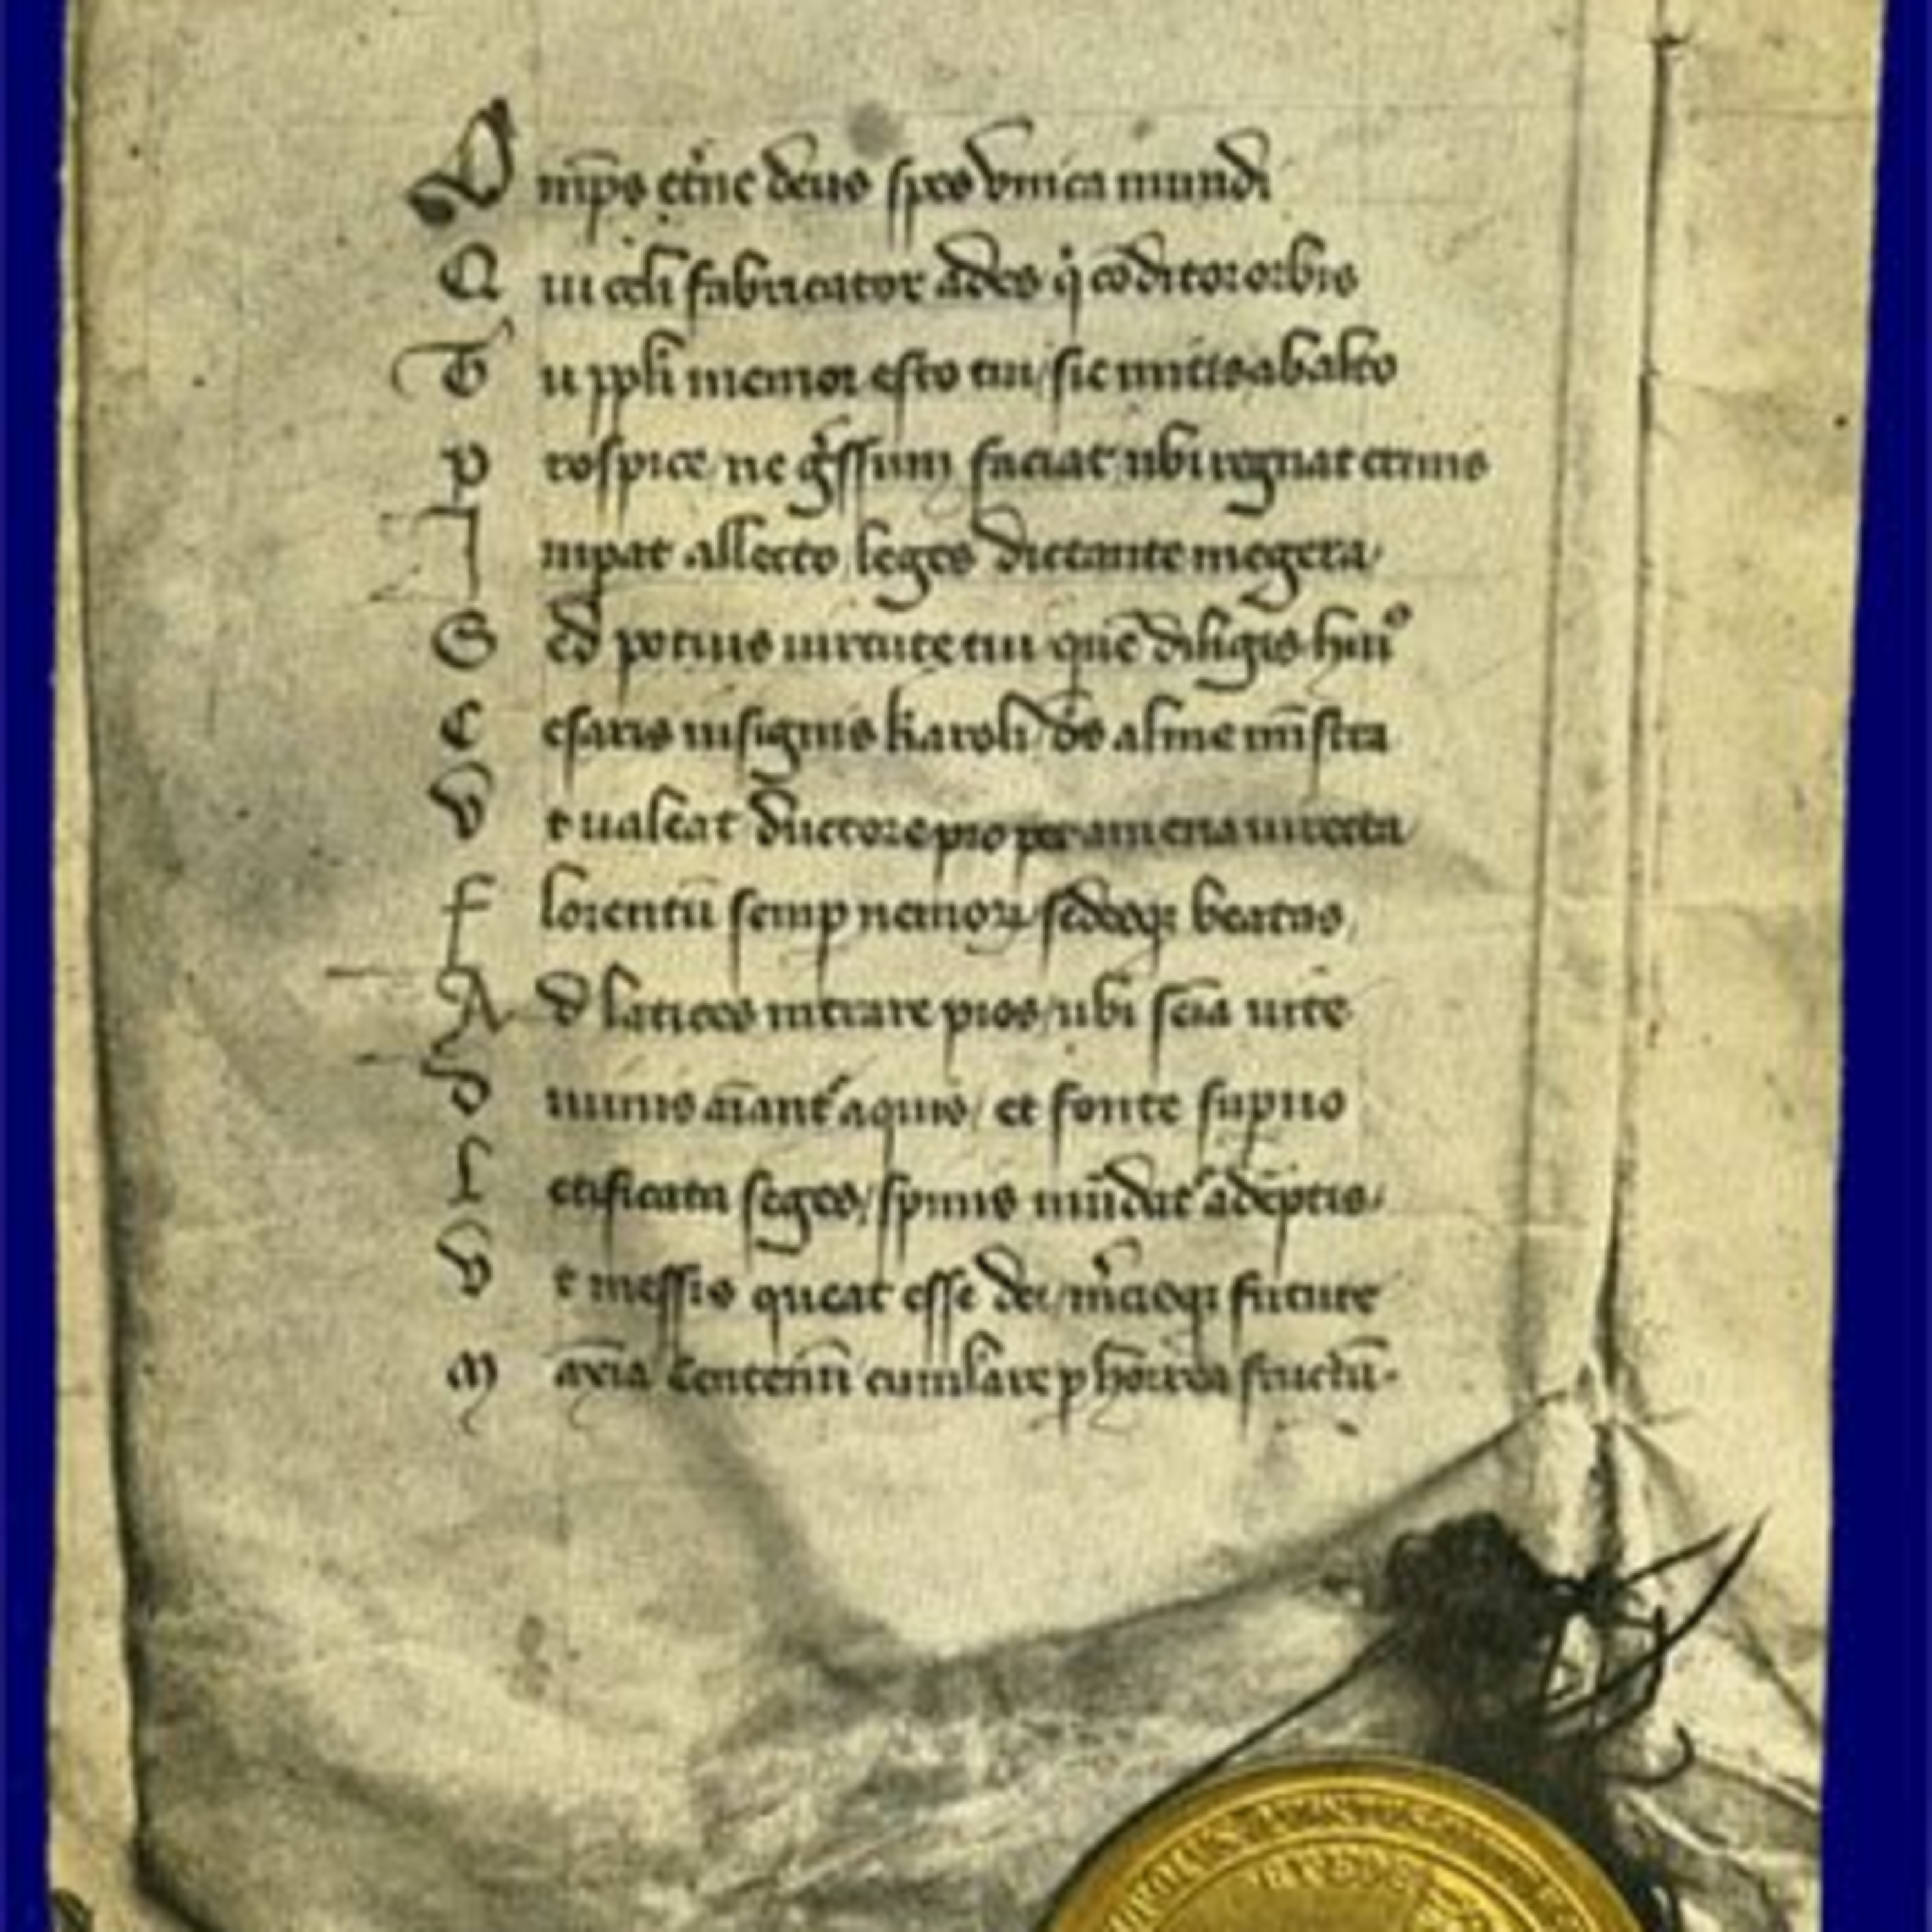 Omps etne deus spes vnica mundi
Qui celi fabricator ades qi coditor orbis
Tu ppli memor esto tui / sic mitis ab alto
Prospice / ne gssum faciat / ubi regnat erinis
Impat allecto / leges dictante megera /
Sed potius uirtute tui que diligis / huio
Cesaris insignis karoli / ds alme mistra
Vt ualeat ductore pio per amena uirecta /
Florentu semp nemor sedesqr beatas /
Ad latices intrare pios / ubi seia uite
Diuinis aiant aquis / et fonte supno
Letificata seges / spinis mudat adeptis /
Vt messis queat esse dei / mcisqr future
Maxia Centenu cumlare p horrea fructu.